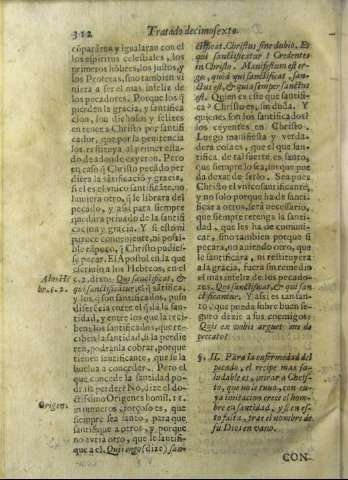 312
Tratado decimosexto.
compararse, y igualaran con el
los espiritus celestiales, los
primeros hōbres, los justos, y
los Profetas, sino tambien vi
niera a ser el mas infeliz de
los pecadores. Porque los q̄
pierden la gracia, y santifica
cion, son dichosos y felizes
en tener a Christo por santifi
cador, que por la penitencia
los restituya al primer esta-
do de adonde cayeron. Pero
en caso q̄ Christo pecado per
diera la santificació y gracia,
si el es el vnico santificāte, no
huuiera otro, q̄ le librara del
pecado, y assi para siempre
quedara priuado de la santifi
cacion y gracia. Y si esto ni
parece conueniente, ni posi-
ble é apoyo, q̄ Christo pudies
se pecar. El Apostol en la que
escriuio a los Hebreos, en el
c. 2. dixo: Qui sanctificat, &
qui sanctificatur, el q̄ sātifica,
y los q̄ son santificados, puso
diferēcia entre el q̄ dà la san-
tidad, y entre los que la reci-
ben; los santificados, que re-
ciben la santidad, si la pierden
ren, podranla cobrar, porque
tienen santificante, que se la
buelua a conceder. Pero el
que concede la santidad po-
drála perder? No, dize el do-
ctissimo Origenes homil. 11.
in numeros, forçoso es, que
siempre sea santo, para que
santifique a otros, y porque
no auria otro, que le santifi-
que a el. Qui ergo (dize) san-
Ad Heb. c. 2.
Origen.
ctificat, Christus sine dubio. Et
qui sanctificatur? Credentes
in Christo. Manifestum est er-
go, quòd qui sanctificat, san-
ctus est, & quia semper sanctus
est. Quien es este que santifi-
ca? Christo es, sin duda. Y
quienes son los santificados?
los creyentes en Christo.
Luego manifiesta y verda-
dera cosa es, que el que san-
tifica de tal suerte es santo,
que siempre lo sea, sin que pue
da dexar de serlo. Sea pues
Christo el vnico santificante,
y no solo porque ha de santi-
ficar a otros, será necessario,
que siempre retenga la santi-
dad, que les ha de comuni-
car, sino tambien porque si
pecara, no auiendo otro, que
le santificara, ni restituyera
a la gracia, fuera sin remedio
el mas infelize de los pecado-
res. Qui sanctificat, & qui san-
ctificantur. Y assi es tan san-
to, que pueda sobre buen se-
guro dezir a sus enemigos:
Quis ex vobis arguet me de
peccato?
§. II. Para la enfermedad del
pecado, el recipe mas sa-
ludable es, mirar a Chris-
to, que no le tuuo, con cu-
ya imitacion crece el hom-
bre en santidad, y si en es-
to falta, trae el nombre de
su Dios en vano.
CON-